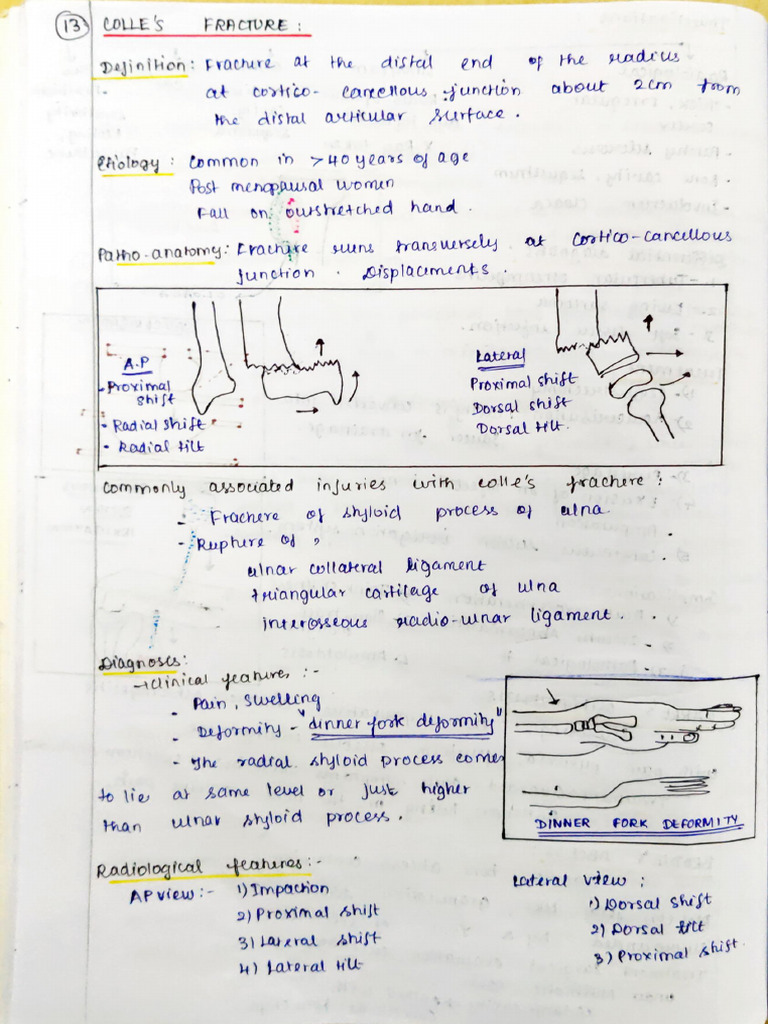 13 COLLE'S FRACTURE :
Definition : Fracture at the distal end of the radius
at cortico-cancellous junction about 2cm from
the distal articular surface.
Etiology : Common in >40 years of age
Post menopausal women
Fall on outstretched hand.
Patho-anatomy : Fracture runs transversely at cortico-cancellous
junction. Displacements.
A.P
- Proximal
shift
- Radial shift
- Radial tilt
Lateral
Proximal shift
Dorsal shift
Dorsal tilt.
Commonly associated injuries with colle's fracture :
- Fracture of styloid process of ulna
- Rupture of ,
ulnar collateral ligament
triangular cartilage of ulna
interosseous radio-ulnar ligament.
Diagnoses :
→ clinical features :-
- Pain, swelling
- Deformity - "dinner fork deformity"
- The radial styloid process comes
to lie at same level or just higher
than ulnar styloid process.
DINNER FORK DEFORMITY
Radiological features :-
AP view :- 1) Impaction
2) Proximal shift
3) Lateral shift
4) Lateral tilt
Lateral view :
1) Dorsal shift
2) Dorsal tilt
3) Proximal shift.